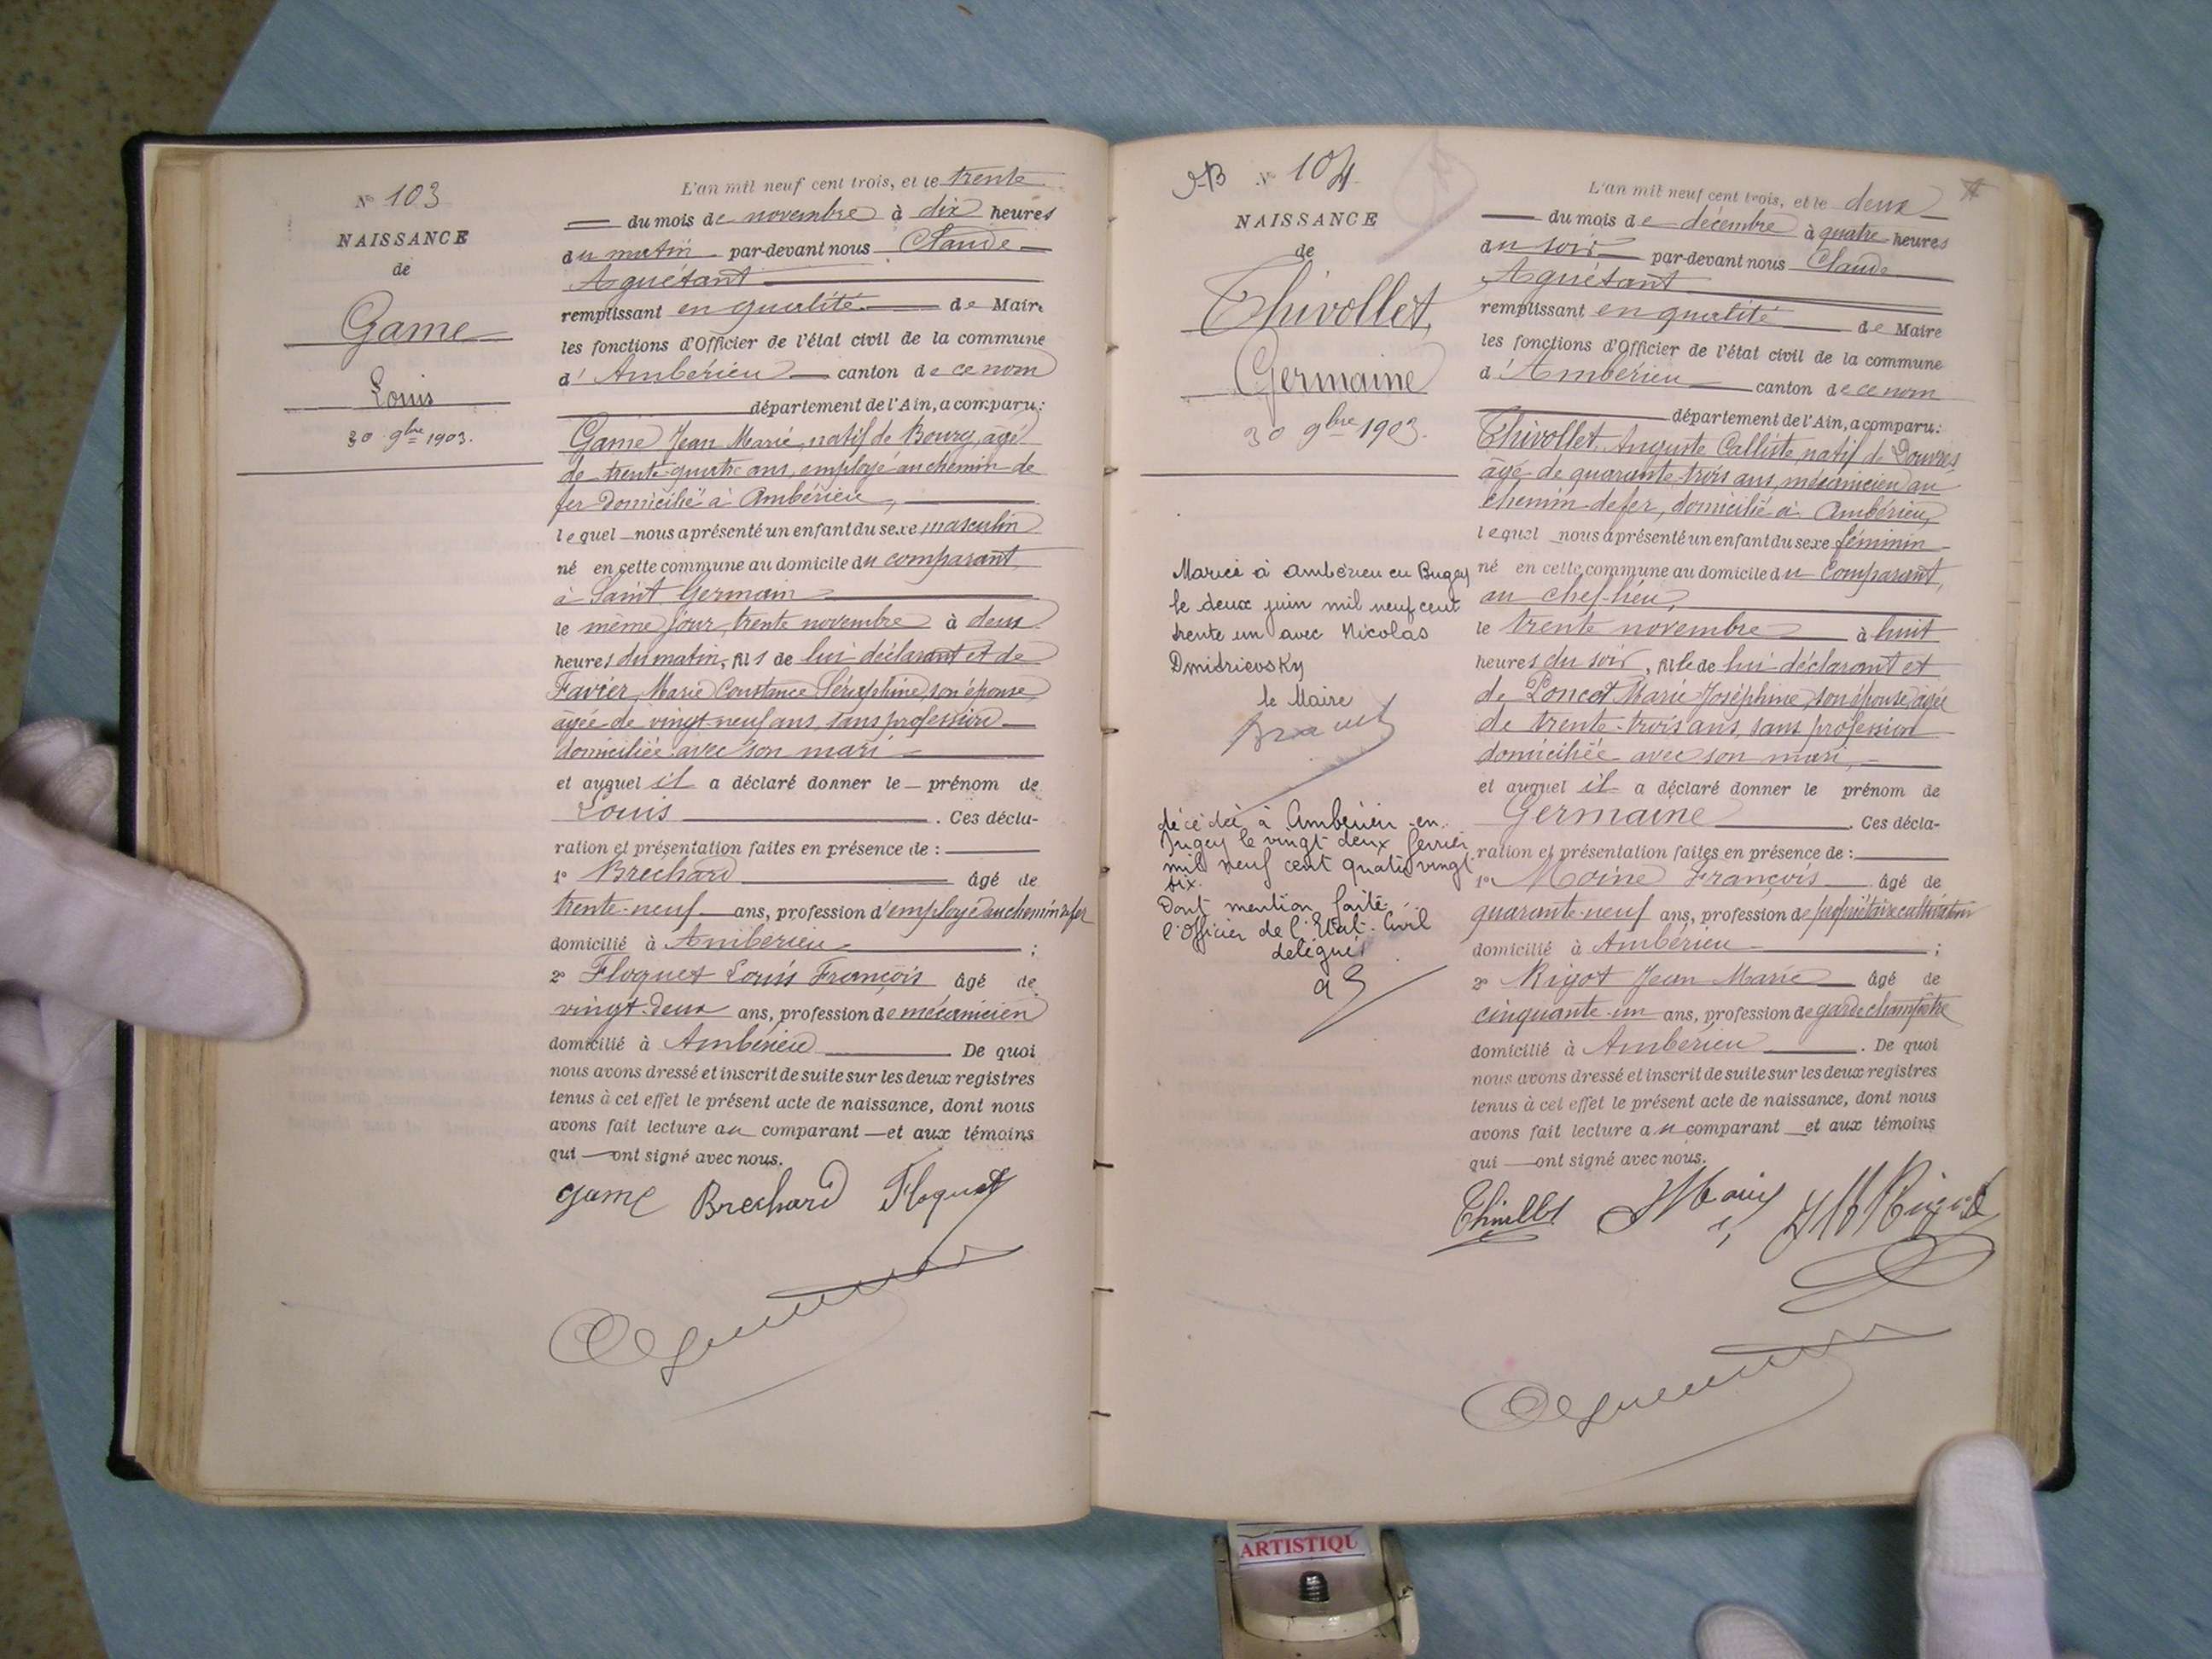 N° 103
NAISSANCE
de
Game
Louis
30 9bre 1903.
L'an mil neuf cent trois, et le trente
du mois de novembre à dix heures
du matin par-devant nous Claude
Aguétant
remplissant en qualité de Maire
les fonctions d'Officier de l'état civil de la commune
d'Ambérieu canton de ce nom
département de l'Ain, a comparu:
Game Jean Marie, natif de Bourg, âgé
de trente-quatre ans, employé au chemin de
fer domicilié à Ambérieu,
lequel nous a présenté un enfant du sexe masculin
né en cette commune au domicile du comparant
à Saint Germain
le même jour, trente novembre à deux
heures du matin, fils de lui déclarant et de
Favier, Marie Constance Séraphine, son épouse,
âgée de vingt-neuf ans, sans profession
domiciliée avec son mari
et auquel il a déclaré donner le prénom de
Louis. Ces décla-
ration et présentation faites en présence de :
1° Brechard âgé de
trente-neuf ans, profession d'employé au chemin de fer
domicilié à Ambérieu ;
2° Floquet Louis François âgé de
vingt-deux ans, profession de mécanicien
domicilié à Ambérieu De quoi
nous avons dressé et inscrit de suite sur les deux registres
tenus à cet effet le présent acte de naissance, dont nous
avons fait lecture au comparant et aux témoins
qui ont signé avec nous.
Game Brechard Floquet
N° 104
NAISSANCE
de
Thivollet,
Germaine
30 9bre 1903.
Mariée à Ambérieu en Bugey
le deux juin mil neuf cent
trente un avec Nicolas
Dmidrievsky
le Maire
décédée à Ambérieu-en-
Bugey le vingt deux février
mil neuf cent quatre vingt
six.
Dont mention faite
l'Officier de l'Etat-Civil
délégué,
L'an mil neuf cent trois, et le deux
du mois de décembre à quatre heures
du soir par-devant nous Claude
Aguétant
remplissant en qualité de Maire
les fonctions d'Officier de l'état civil de la commune
d'Ambérieu canton de ce nom
département de l'Ain, a comparu:
Thivollet, Auguste Calliste, natif de Douvres,
âgé de quarante-trois ans, mécanicien au
chemin de fer, domicilié à Ambérieu,
lequel nous a présenté un enfant du sexe féminin
né en cette commune au domicile du comparant,
au chef-lieu,
le trente novembre à huit
heures du soir, fille de lui déclarant et
de Poncet Marie Joséphine, son épouse, âgée
de trente-trois ans, sans profession
domiciliée avec son mari,
et auquel il a déclaré donner le prénom de
Germaine. Ces décla-
ration et présentation faites en présence de :
1° Moine François âgé de
quarante-neuf ans, profession de propriétaire cultivateur
domicilié à Ambérieu ;
2° Rigot Jean Marie âgé de
cinquante-un ans, profession de garde champêtre
domicilié à Ambérieu. De quoi
nous avons dressé et inscrit de suite sur les deux registres
tenus à cet effet le présent acte de naissance, dont nous
avons fait lecture au comparant et aux témoins
qui ont signé avec nous.
ARTISTIQU